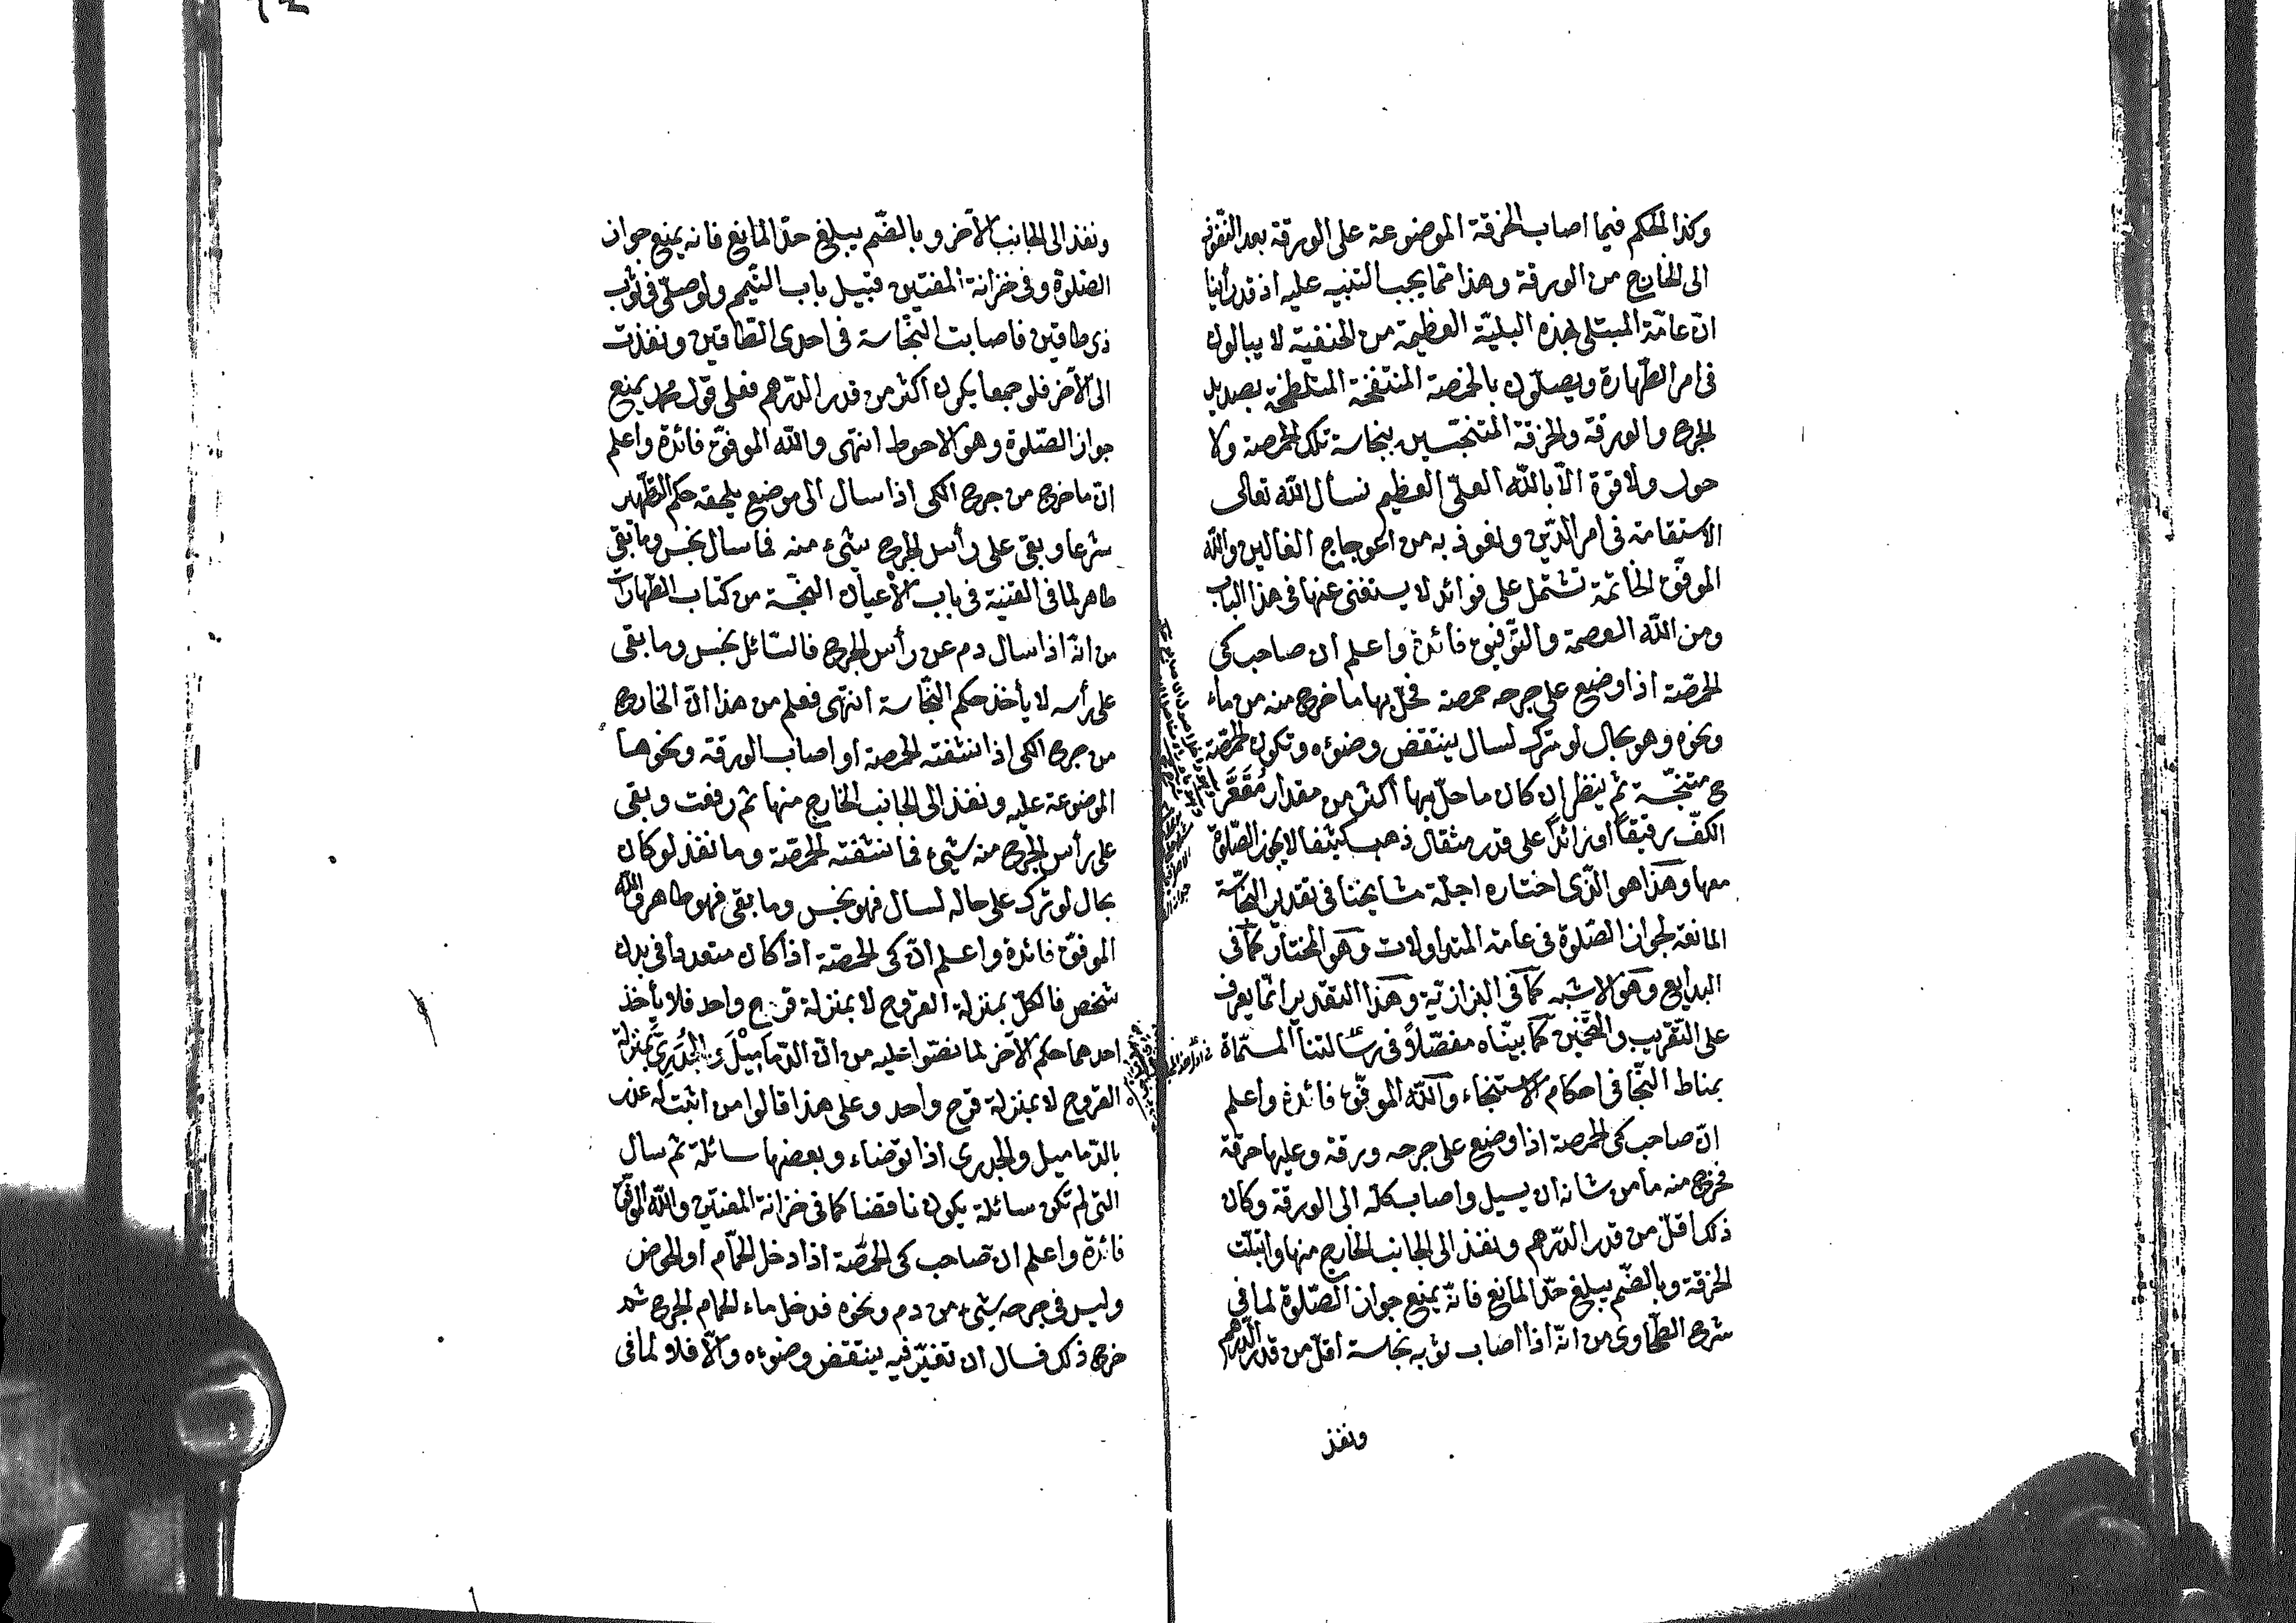 وكذا الحكم فيما اصاب الخرقة الموضوعة على الورقة بعد النفوذ
الى الخارج من الورقة وهذا مما يجب التنبيه عليه اذ قد رأينا
انّ عامّة المبتلى بهذه البليّة العظيمة من الحنفيّة لا يبالون
فى امر الطّهارة ويصلّون بالحمصة المنتفخة المتلطخة بصديد
الجرح والورقة والخرقة المتنجّسين بنجاسة تلك الحمصة ولا
حول ولا قوة الّا بالله العلىّ العظيم نسأل الله تعالى
الاستقامة فى امر الدّين ونعوذ به من اعوجاج الغالين والله
الموفّق الخاتمة تشتمل على فوائد لا يستغنى عنها فى هذا الباب
ومن الله العصمة والتّوفيق فائدة واعلم ان صاحب كى
الحمّصة اذا وضع على جرحه حمصة فحلّ بها ما خرج منه من ماء
ونحوه وهو بحال لو ترك لسال ينتقض وضوءه وتكون الحمّصة
ح متنجّسة ثم ينظر ان كان ما حلّ بها اكثر من مقدار مُقَعَّر
الكفّ رقيقاً او زائداً على قدر مثقال ذهب كثيفا لا يجوز الصّلوة
معها وهذا هو الّذى اختاره اجلّة مشايخنا فى تقدير النّجاسة
المانعة لجواز الصّلوة فى عامة المتداولات وهو المختار كما فى
البدايع وهو الاشبه كما فى البزازيّة وهذا التقدير انّما يعرف
على التّقريب والتّخمين كما بيّناه مفصّلاً فى رسالتنا المسمّاة
بمناط النّجا فى احكام الاستنجاء والله الموفّق فائدة واعلم
انّ صاحب كى الحمصة اذا وضع على جرحه ورقة وعليها خرقة
فخرج منه ما من شانه ان يسيل واصاب كلّه الى الورقة وكان
ذلك اقلّ من قدر الدّرهم ونفذ الى الجانب الخارج منها وابتلّت
الخرقة وبالضّم يبلغ حدّ المانع فانّه يمنع جواز الصّلوة لما فى
شرح الطّحاوى من انّه اذا اصاب ثوبه نجاسة اقلّ من قدر الدّرهم
ونفذ
ونفذ الى الجانب الآخر وبالضّم يبلغ حدّ المانع فانه يمنع جواز
الصّلوة وفى خزانة المفتين قبيل باب التّيمم ولو صلّى فى ثوب
ذى طاقين فاصابت النّجاسة فى احدى الطّاقين ونفذت
الى الآخر فلو جمعا يكون اكثر من قدر الدّرهم فعلى قول محمد يمنع
جواز الصّلوة وهو الاحوط انتهى والله الموفق فائدة واعلم
انّ ما خرج من جرح الكى اذا سال الى موضع يلحقه حكم التّطهير
شرعا وبقى على رأس الجرح شىء منه فما سال نجس وما بقى
طاهر لما فى القنية فى باب الاعيان النجسة من كتاب الطّهارات
من انّه اذا سال دم عن رأس الجرح فالسّائل نجس وما بقى
على رأسه لا يأخذ حكم النّجاسة انتهى فعلم من هذا انّ الخارج
من جرح الكى اذا نشفته الحمصة او اصاب الورقة ونحوها
الموضوعة عليه ونفذ الى الجانب الخارج منها ثم رفعت وبقى
على رأس الجرح منه شىء فما نشفته الحمّصة وما نفذ لو كان
بحال لو ترك على حاله لسال فهو نجس وما بقى فهو طاهر والله
الموفّق فائدة واعلم انّ كى الحمّصة اذا كان متعددا فى بدن
شخص فالكلّ بمنزلة القروح لا بمنزلة قرح واحد فلا يأخذ
احدهما حكم الآخر لما نصّوا عليه من انّ الدّمَامِيْلَ والجُدَرِىّ بمنزلة
القروح لا بمنزلة قرح واحد وعلى هذا قالوا من اثبت له عذر
بالدّماميل والجدرى اذا توضاء وبعضها سائلة ثم سال
التى لم تكن سائلة يكون ناقضا كما فى خزانة المفتين والله الموفّق
فائدة واعلم انّ صاحب كى الحمّصة اذا دخل الحمّام او الحوض
وليس فى جرحه شىء من دم ونحوه فدخل ماء الحمام الجرح ثم
خرج ذلك فسال ان تغيّر فيه ينتقض وضوءه والّا فلا ولما فى